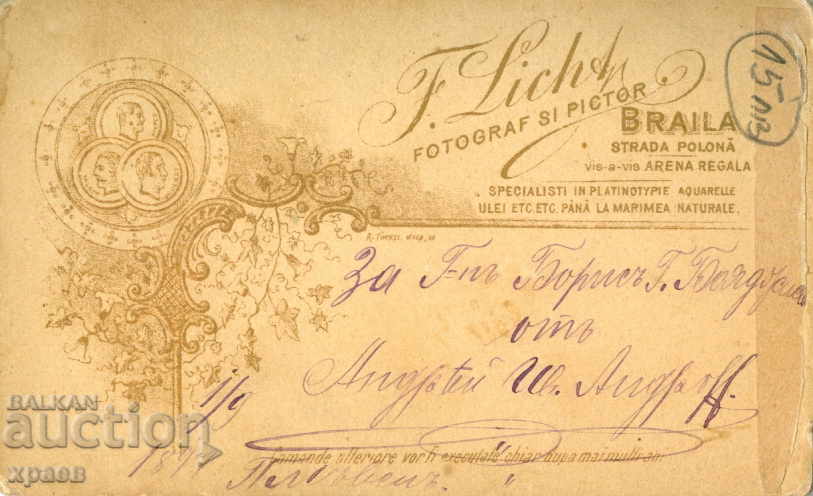 F. Licht
FOTOGRAF SI PICTOR
BRAILA
STRADA POLONĂ
vis-a-vis ARENA REGALA
SPECIALISTI IN PLATINOTYPIE AQUARELLE
ULEI ETC.ETC. PÂNĂ LA MARIMEA NATURALE.
15 лв
За Г-нъ Борисъ Г.
отъ
Андрѣй
1/9
BALKAN
auction
храев
Comande ulteriore vor fi executate chiar dupa mai multi ani